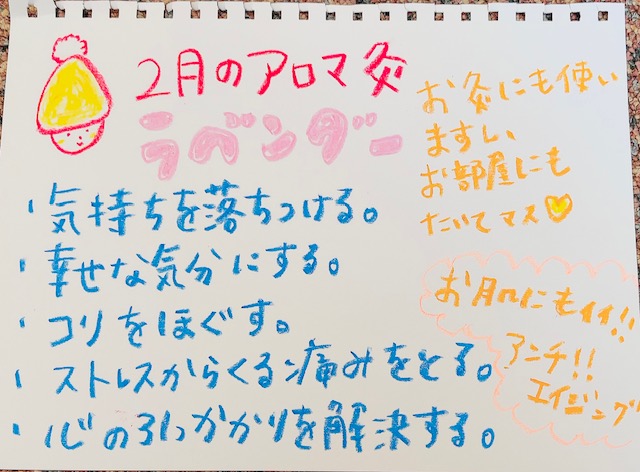 2月のアロマ灸
ラベンダー
・気持ちを落ちつける。
・幸せな気分にする。
・コリをほぐす。
・ストレスからくる痛みをとる。
・心の引っかかりを解決する。
お灸にも使い
ますしぃ
お部屋にも
たいてマス
お肌にもイイ!!
アンチ!!
エイジング